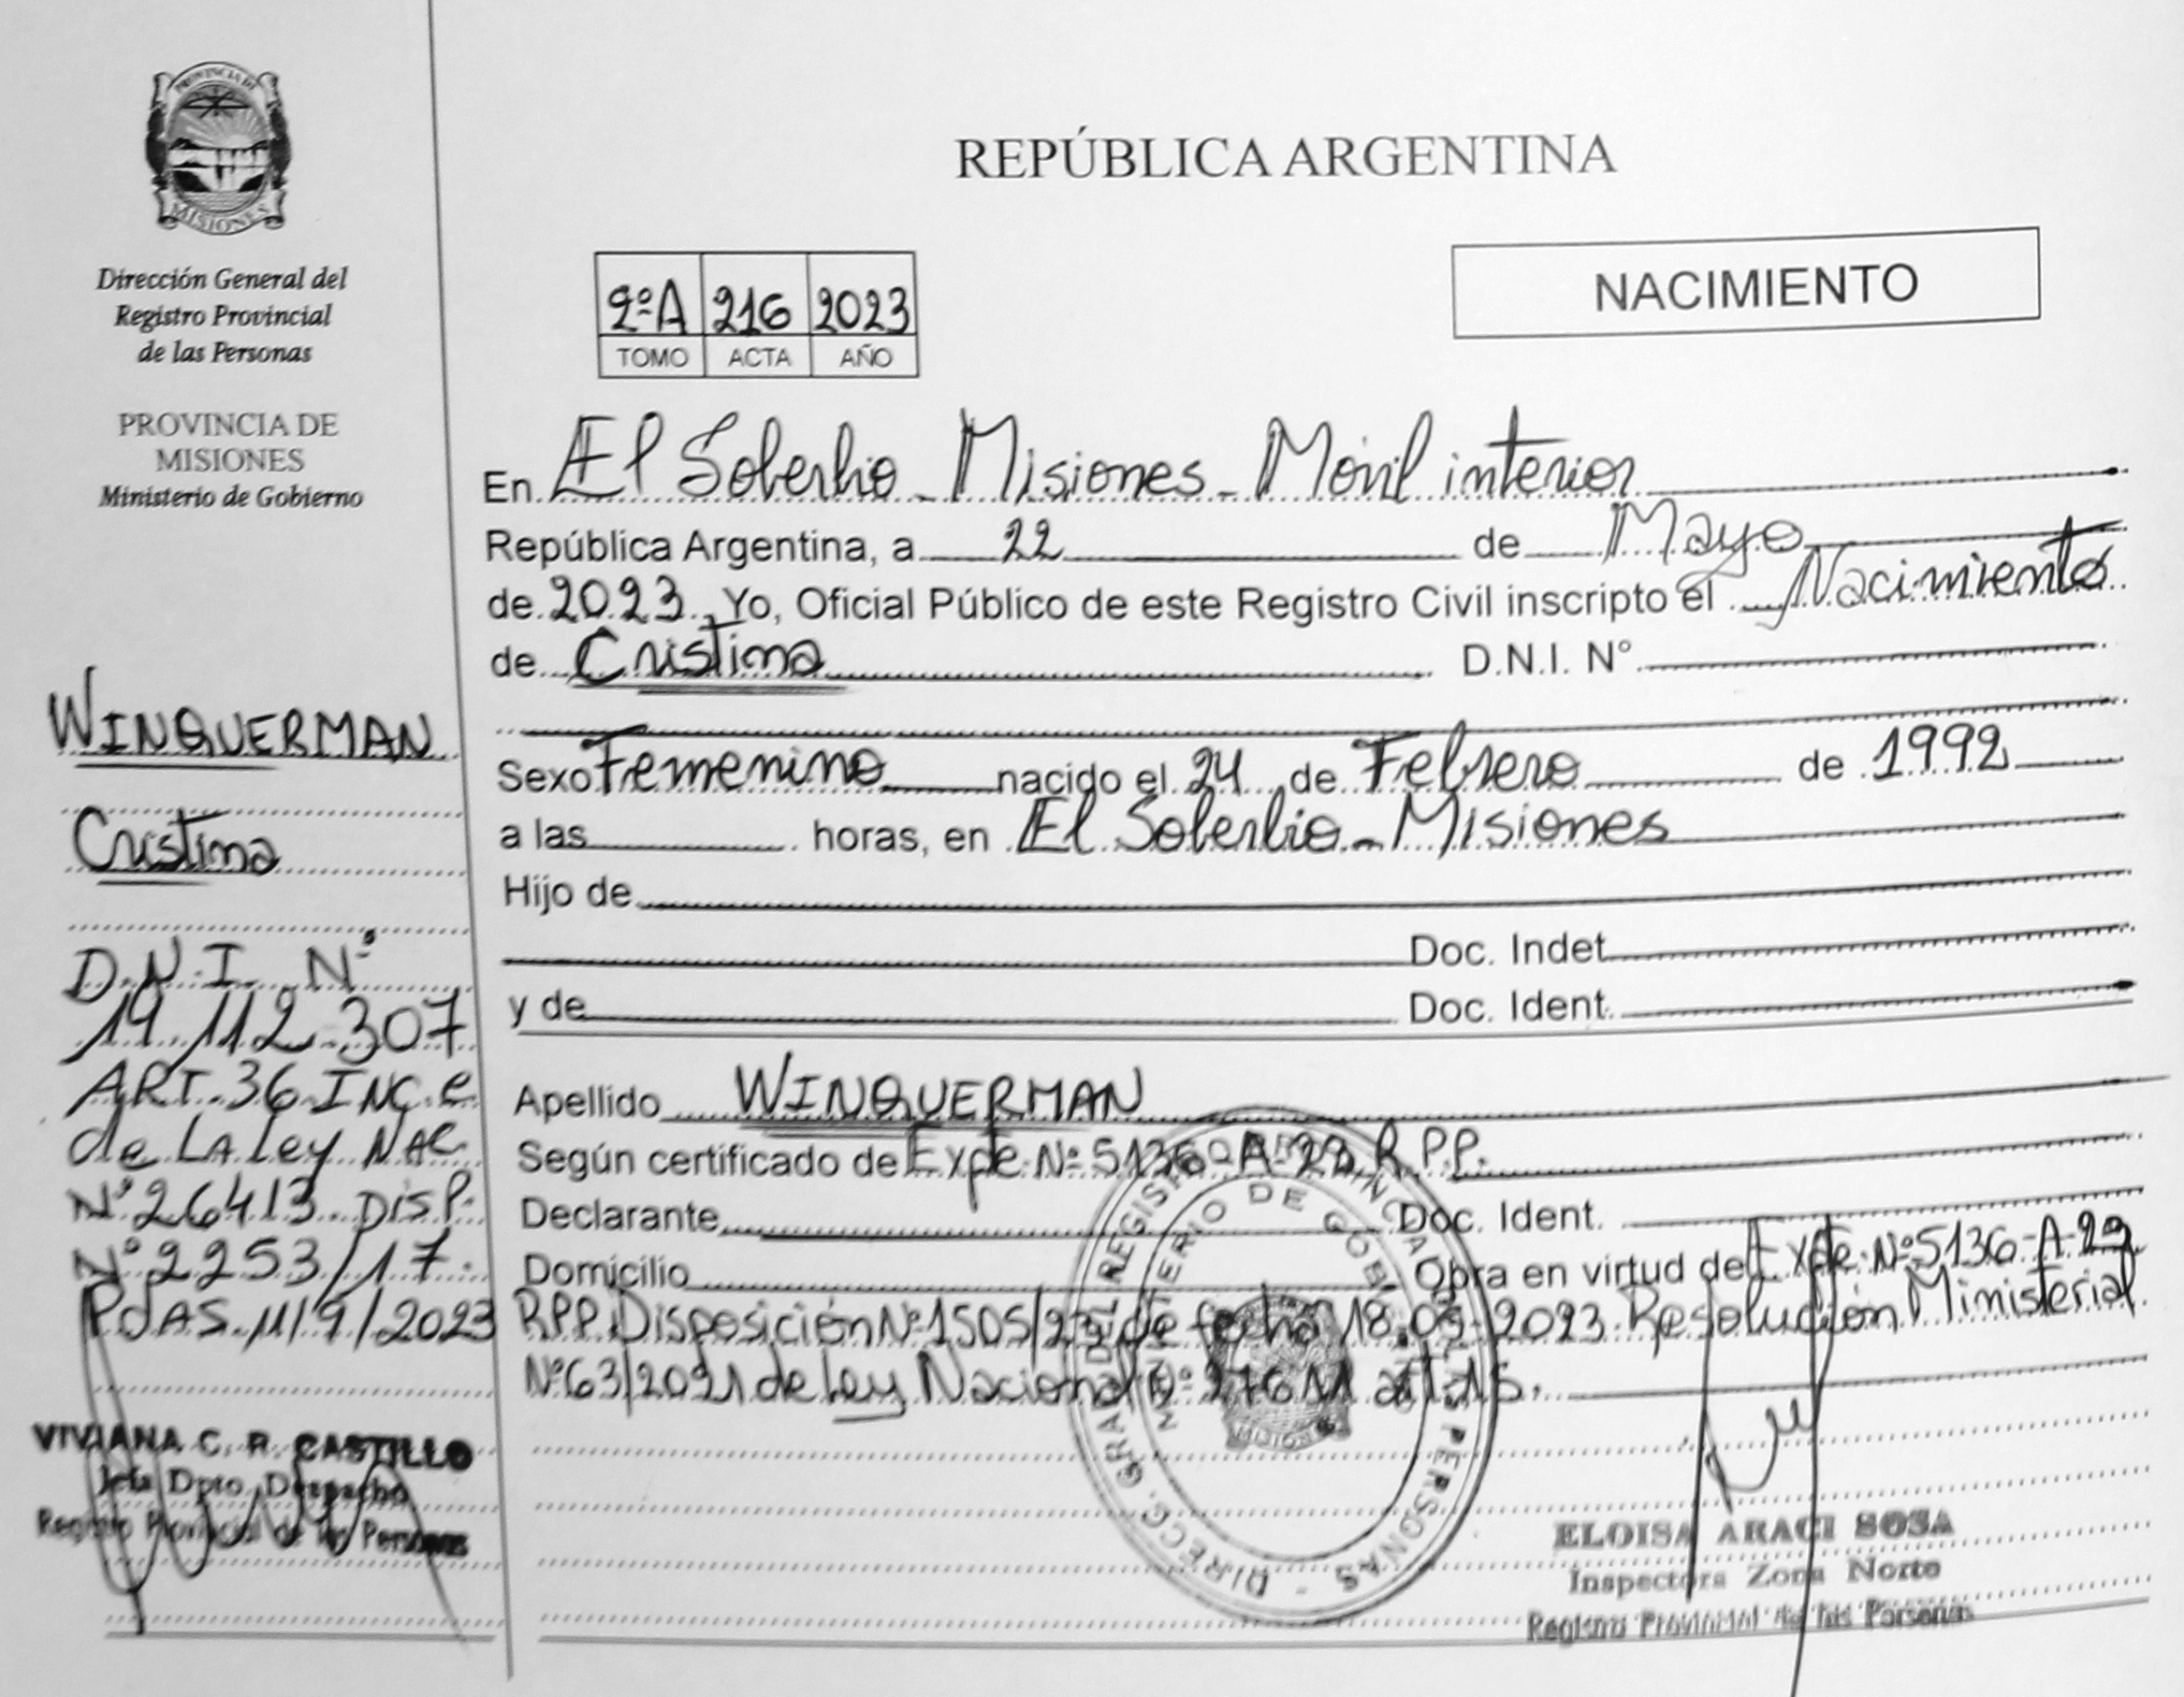 PROVINCIA DE
MISIONES
Dirección General del
Registro Provincial
de las Personas
PROVINCIA DE
MISIONES
Ministerio de Gobierno
WINQUERMAN
Cristina
D.N.I. Nº
19.112.307
ART. 36 INC. e
de LA Ley NAC
Nº 26413 DISP.
Nº 2253/17.
PdAS. 11/9/2023
VIVIANA C. R. CASTILLO
Jefa Dpto. Despacho
Registro Provincial de las Personas
REPÚBLICA ARGENTINA
2ºA 216 2023
TOMO ACTA AÑO
NACIMIENTO
En El Soberbio - Misiones - Móvil interior
República Argentina, a 22 de Mayo
de 2023 Yo, Oficial Público de este Registro Civil inscripto el Nacimiento
de Cristina D.N.I. N°
Sexo Femenino nacido el 24 de Febrero de 1992
a las horas, en El Soberbio - Misiones
Hijo de
Doc. Indet.
y de Doc. Ident.
Apellido WINQUERMAN
Según certificado de Expte Nº 5136-A-23 R.P.P.
Declarante Doc. Ident.
Domicilio Obra en virtud de Expte. Nº 5136-A-23
RPP. Disposición Nº 1505/23 de fecha 18.05.2023 Resolución Ministerial
Nº 63/2021 de Ley Nacional Nº 27611 art. 15.
DIRECC. GRAL. DEL REGISTRO PROVINCIAL DE LAS PERSONAS
MINISTERIO DE GOBIERNO
ELOISA ARACI SOSA
Inspectora Zona Norte
Registro Provincial de las Personas